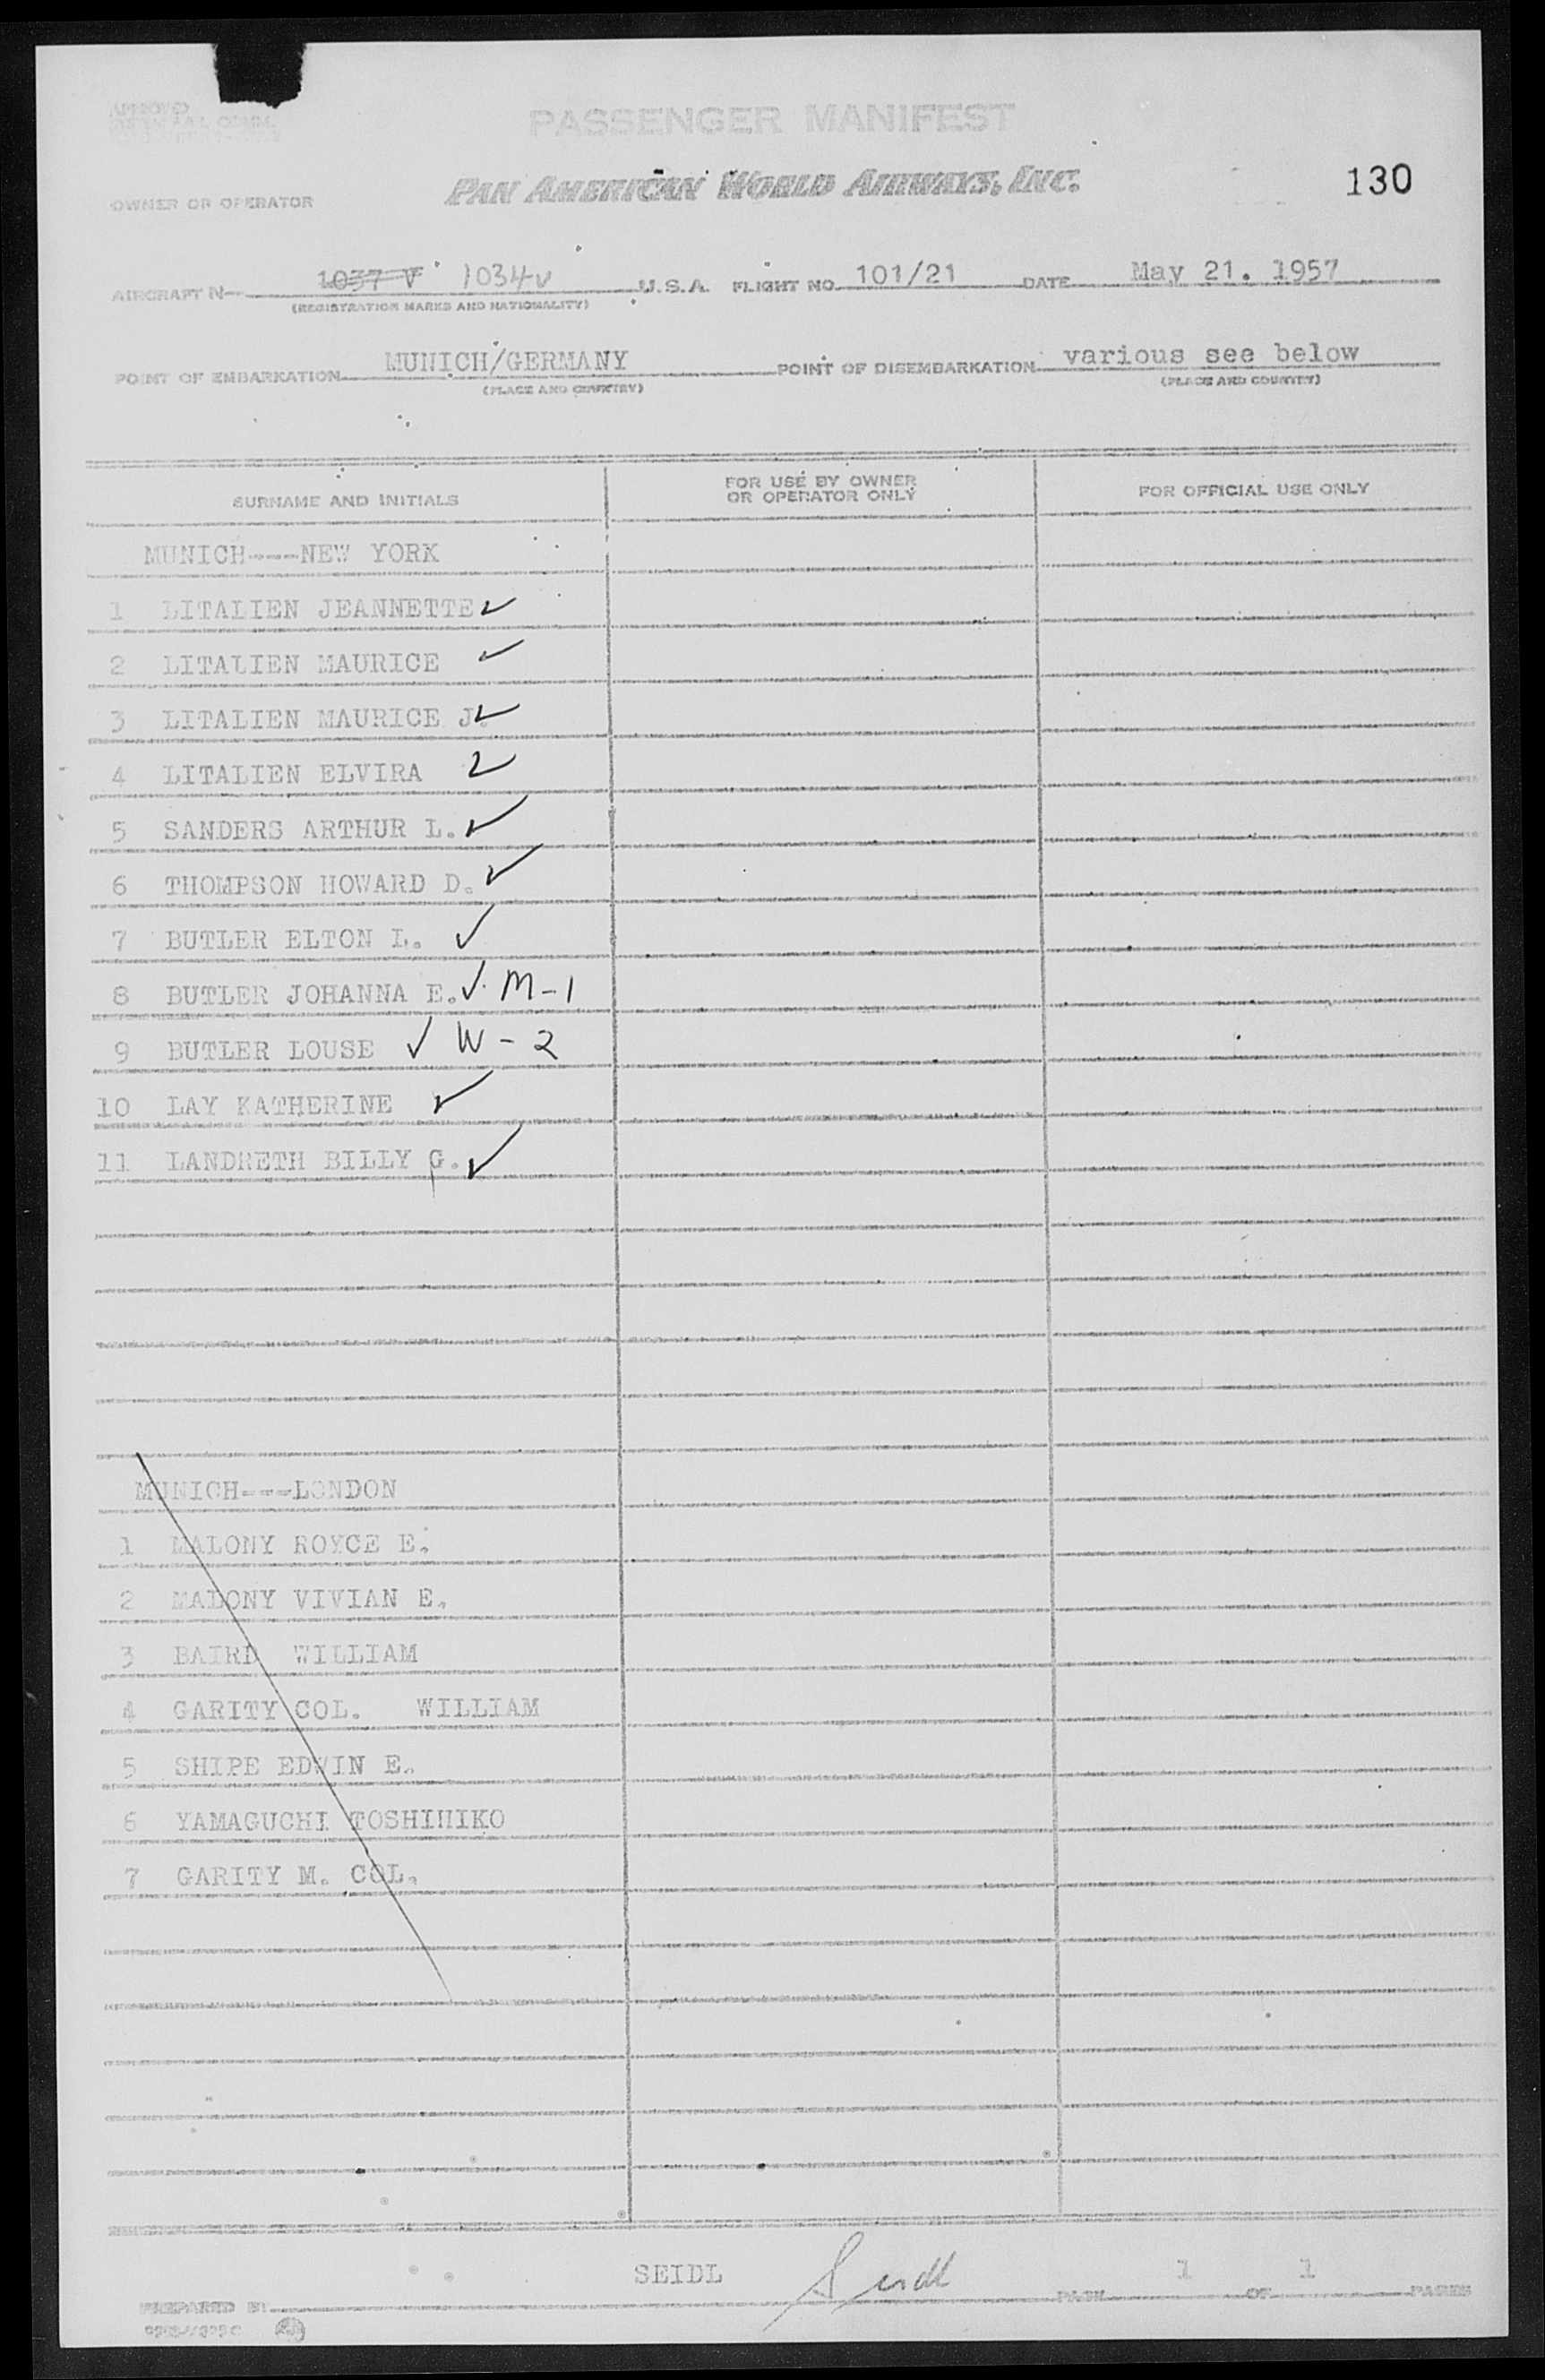 PASSENGER MANIFEST
PAN AMERICAN WORLD AIRWAYS, INC.
130
OWNER OR OPERATOR
AIRCRAFT N- 1037 V 1034V U.S.A. FLIGHT NO. 101/21 DATE May 21. 1957
(REGISTRATION MARKS AND NATIONALITY)
POINT OF EMBARKATION MUNICH/GERMANY POINT OF DISEMBARKATION various see below
(PLACE AND COUNTRY) (PLACE AND COUNTRY)
SURNAME AND INITIALS FOR USE BY OWNER OR OPERATOR ONLY FOR OFFICIAL USE ONLY
MUNICH----NEW YORK
1 LITALIEN JEANNETTE ✓
2 LITALIEN MAURICE ✓
3 LITALIEN MAURICE J. ✓
4 LITALIEN ELVIRA ✓
5 SANDERS ARTHUR L. ✓
6 THOMPSON HOWARD D. ✓
7 BUTLER ELTON L. ✓
8 BUTLER JOHANNA E. ✓ M-1
9 BUTLER LOUSE ✓ W-2
10 LAY KATHERINE ✓
11 LANDRETH BILLY G. ✓
MUNICH---LONDON
1 MALONY ROYCE E.
2 MALONY VIVIAN E.
3 BAIRD WILLIAM
4 GARITY COL. WILLIAM
5 SHIPE EDWIN E.
6 YAMAGUCHI TOSHIHIKO
7 GARITY M. COL.
SEIDL Seidl
PREPARED BY PAGE 1 OF 1 PAGES